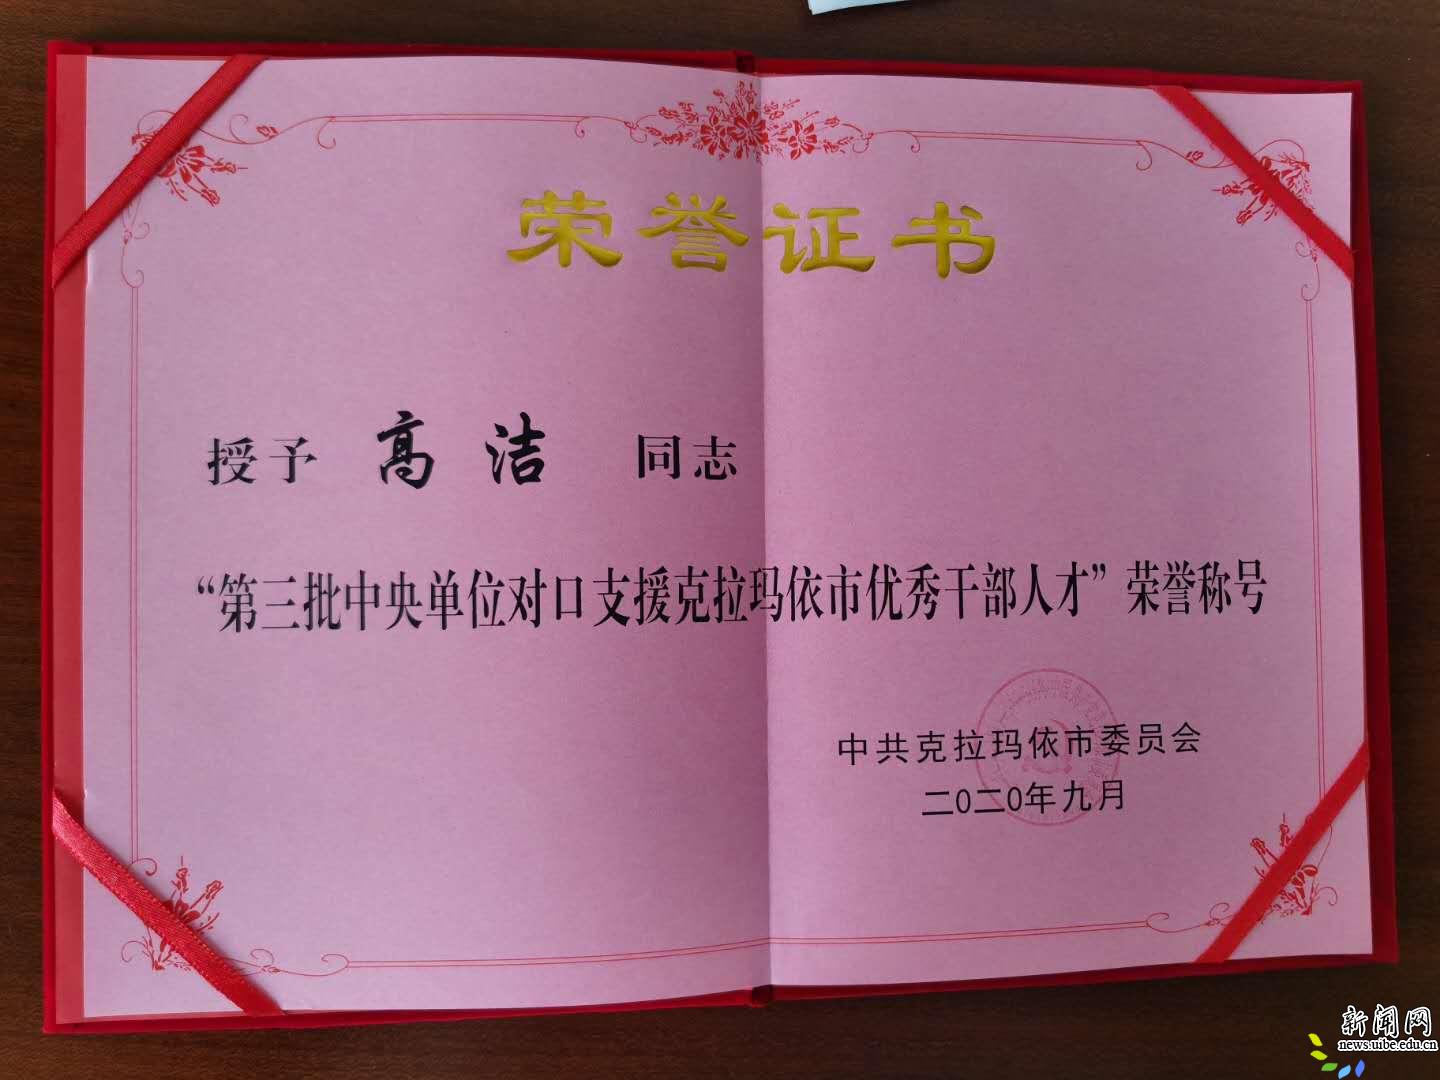 荣誉证书
授予 高洁 同志
“第三批中央单位对口支援克拉玛依市优秀干部人才”荣誉称号
中共克拉玛依市委员会
二〇二〇年九月
新闻网
news.uibe.edu.cn